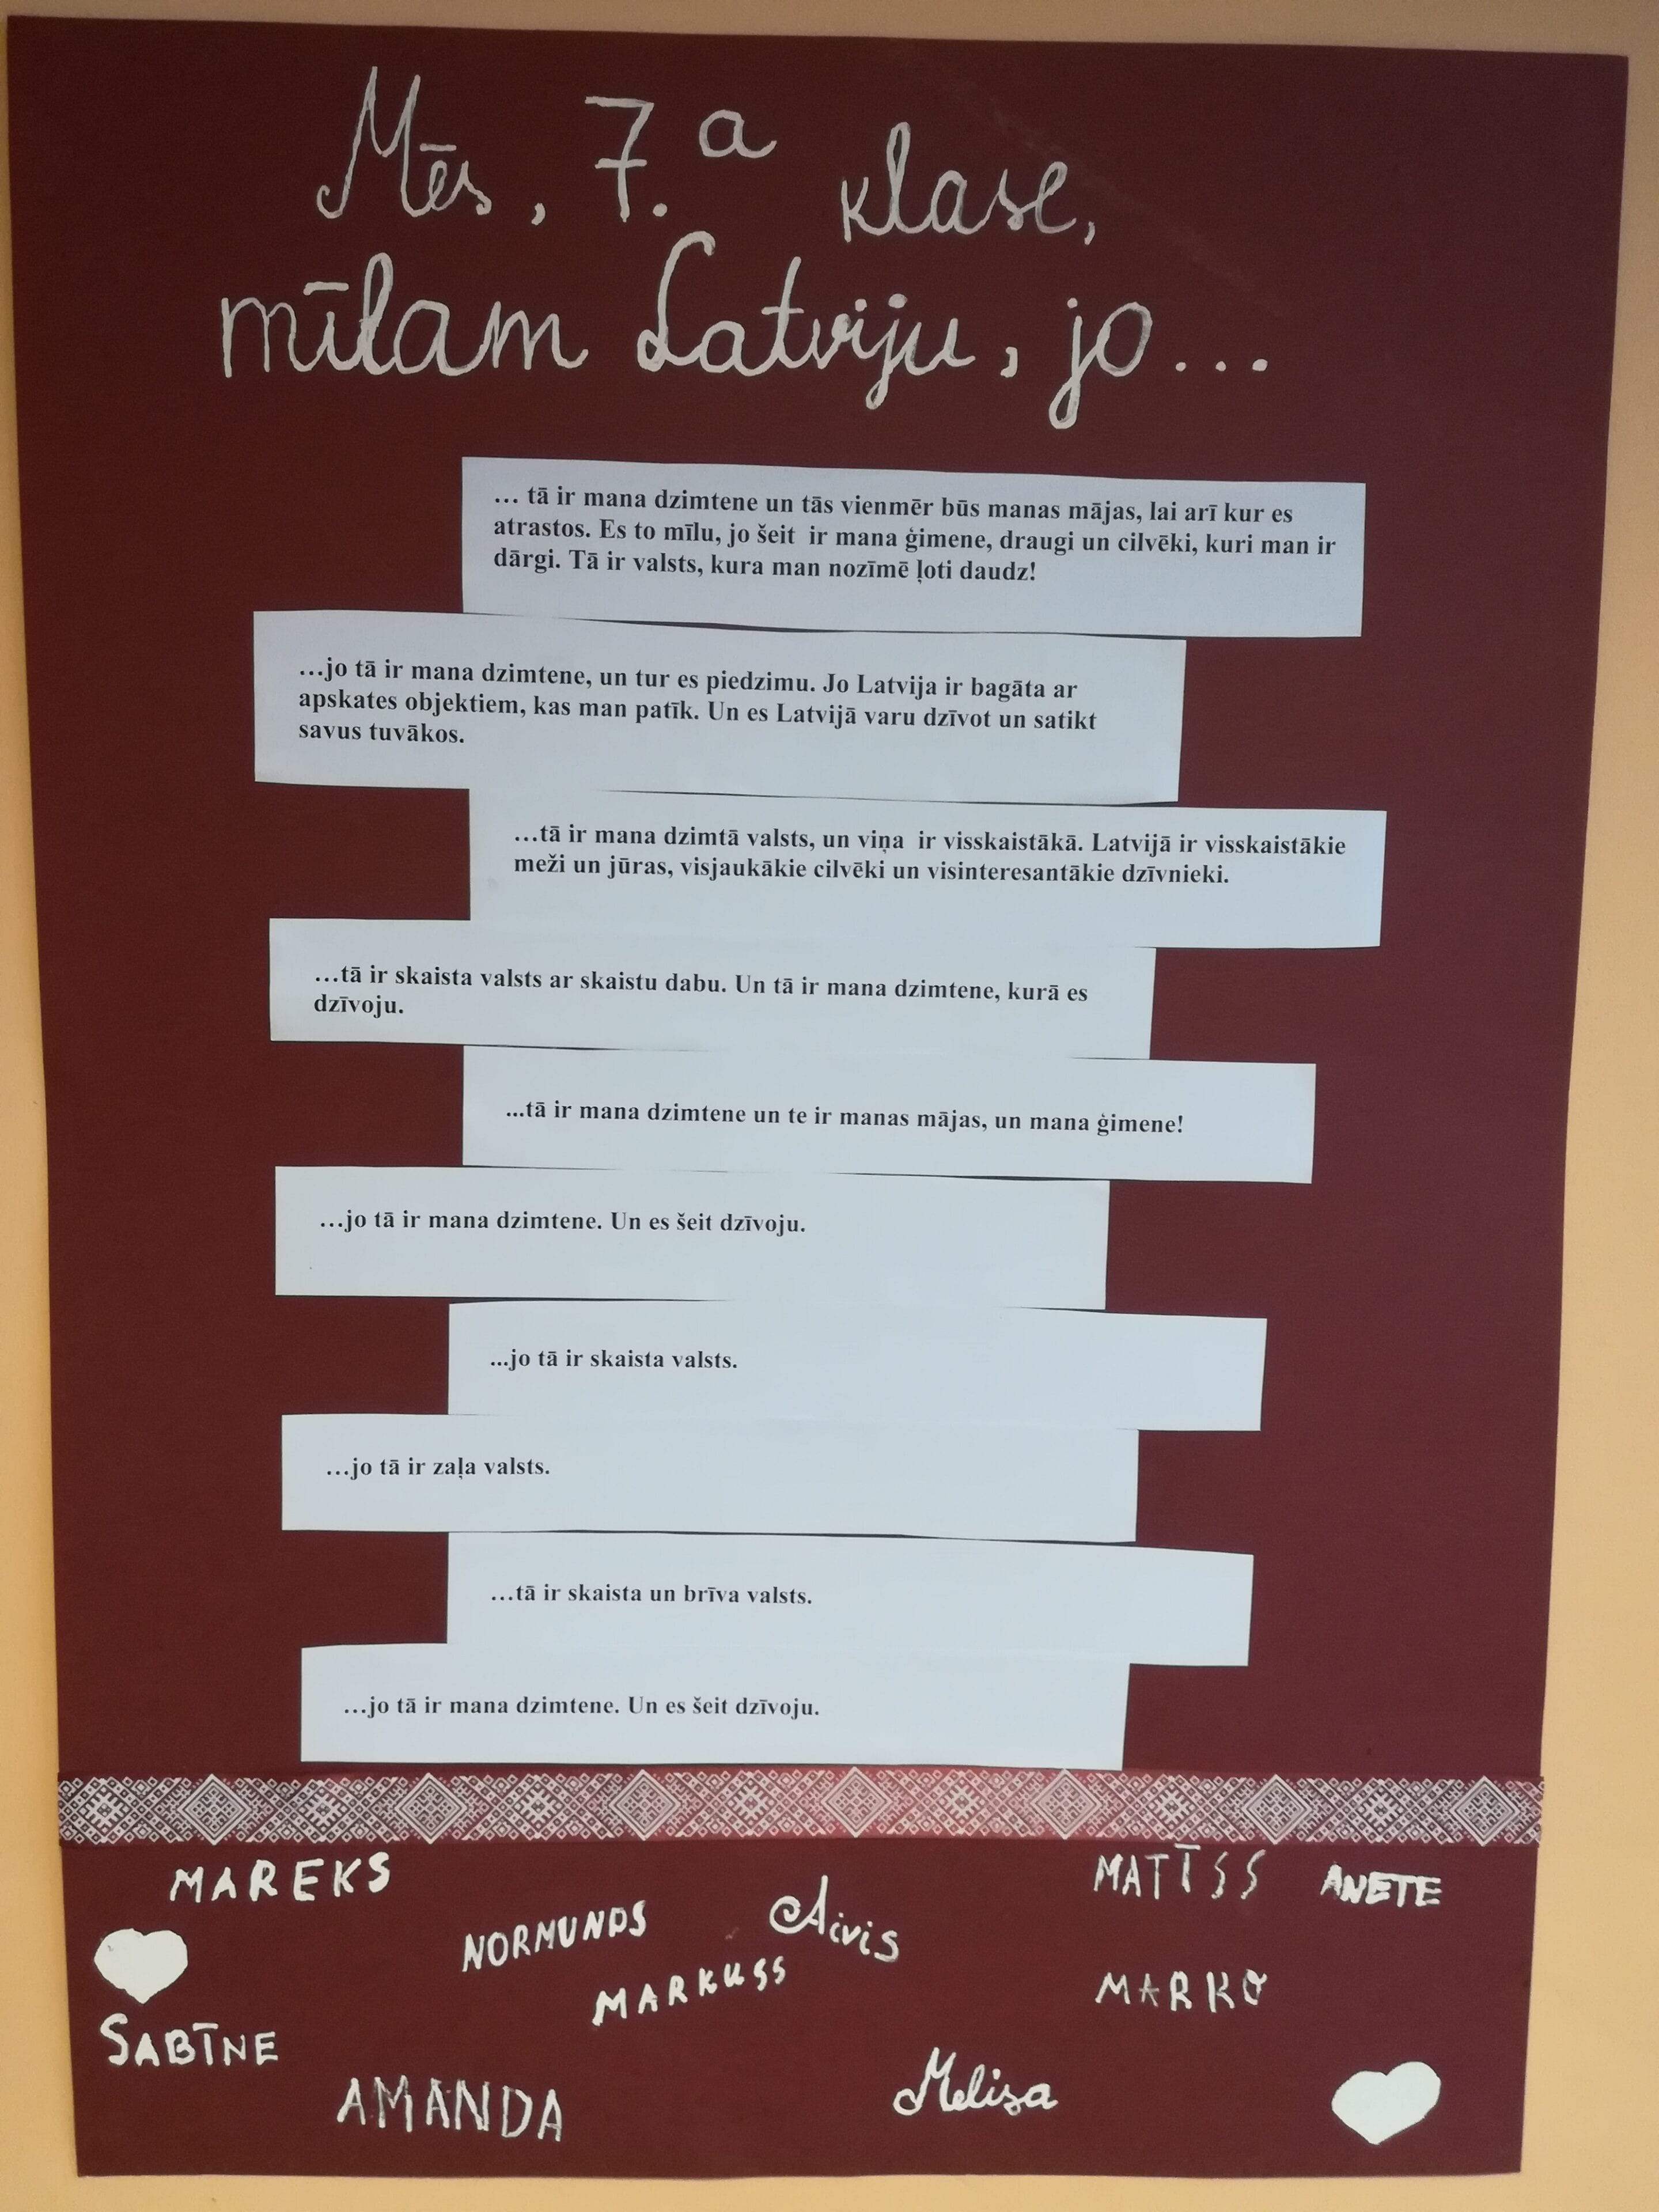 Mēs, 7.a klase,
mīlam Latviju, jo...
... tā ir mana dzimtene un tās vienmēr būs manas mājas, lai arī kur es
atrastos. Es to mīlu, jo šeit  ir mana ģimene, draugi un cilvēki, kuri man ir
dārgi. Tā ir valsts, kura man nozīmē ļoti daudz!
...jo tā ir mana dzimtene, un tur es piedzimu. Jo Latvija ir bagāta ar
apskates objektiem, kas man patīk. Un es Latvijā varu dzīvot un satikt
savus tuvākos.
...tā ir mana dzimtā valsts, un viņa  ir visskaistākā. Latvijā ir visskaistākie
meži un jūras, visjaukākie cilvēki un visinteresantākie dzīvnieki.
...tā ir skaista valsts ar skaistu dabu. Un tā ir mana dzimtene, kurā es
dzīvoju.
...tā ir mana dzimtene un te ir manas mājas, un mana ģimene!
...jo tā ir mana dzimtene. Un es šeit dzīvoju.
...jo tā ir skaista valsts.
...jo tā ir zaļa valsts.
...tā ir skaista un brīva valsts.
...jo tā ir mana dzimtene. Un es šeit dzīvoju.
MAREKS
MATĪSS
ANETE
NORMUNDS
Aivis
MARKUSS
MARKO
SABĪNE
AMANDA
Melisa